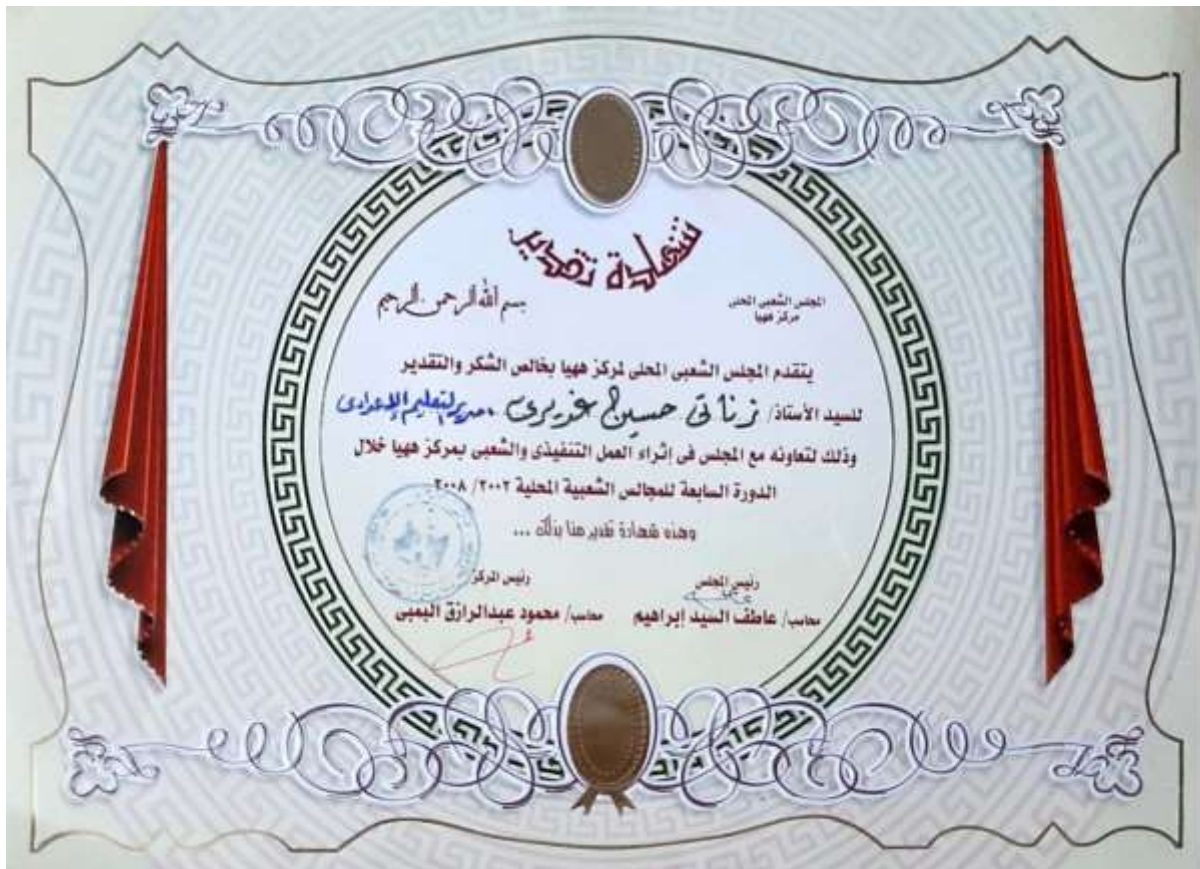 شهادة تقدير
المجلس الشعبى المحلى
مركز ههيا
بسم الله الرحمن الرحيم
يتقدم المجلس الشعبى المحلى لمركز ههيا بخالص الشكر والتقدير
للسيد الأستاذ/ زناتى حسين غزيرى - مدير التعليم الإعدادى
وذلك لتعاونه مع المجلس فى إثراء العمل التنفيذى والشعبى بمركز ههيا خلال
الدورة السابعة للمجالس الشعبية المحلية ٢٠٠٢/ ٢٠٠٨
وهذه شهادة تقدير منا بذلك ...
رئيس المجلس رئيس المركز
محاسب/ عاطف السيد إبراهيم محاسب/ محمود عبدالرازق البمبى